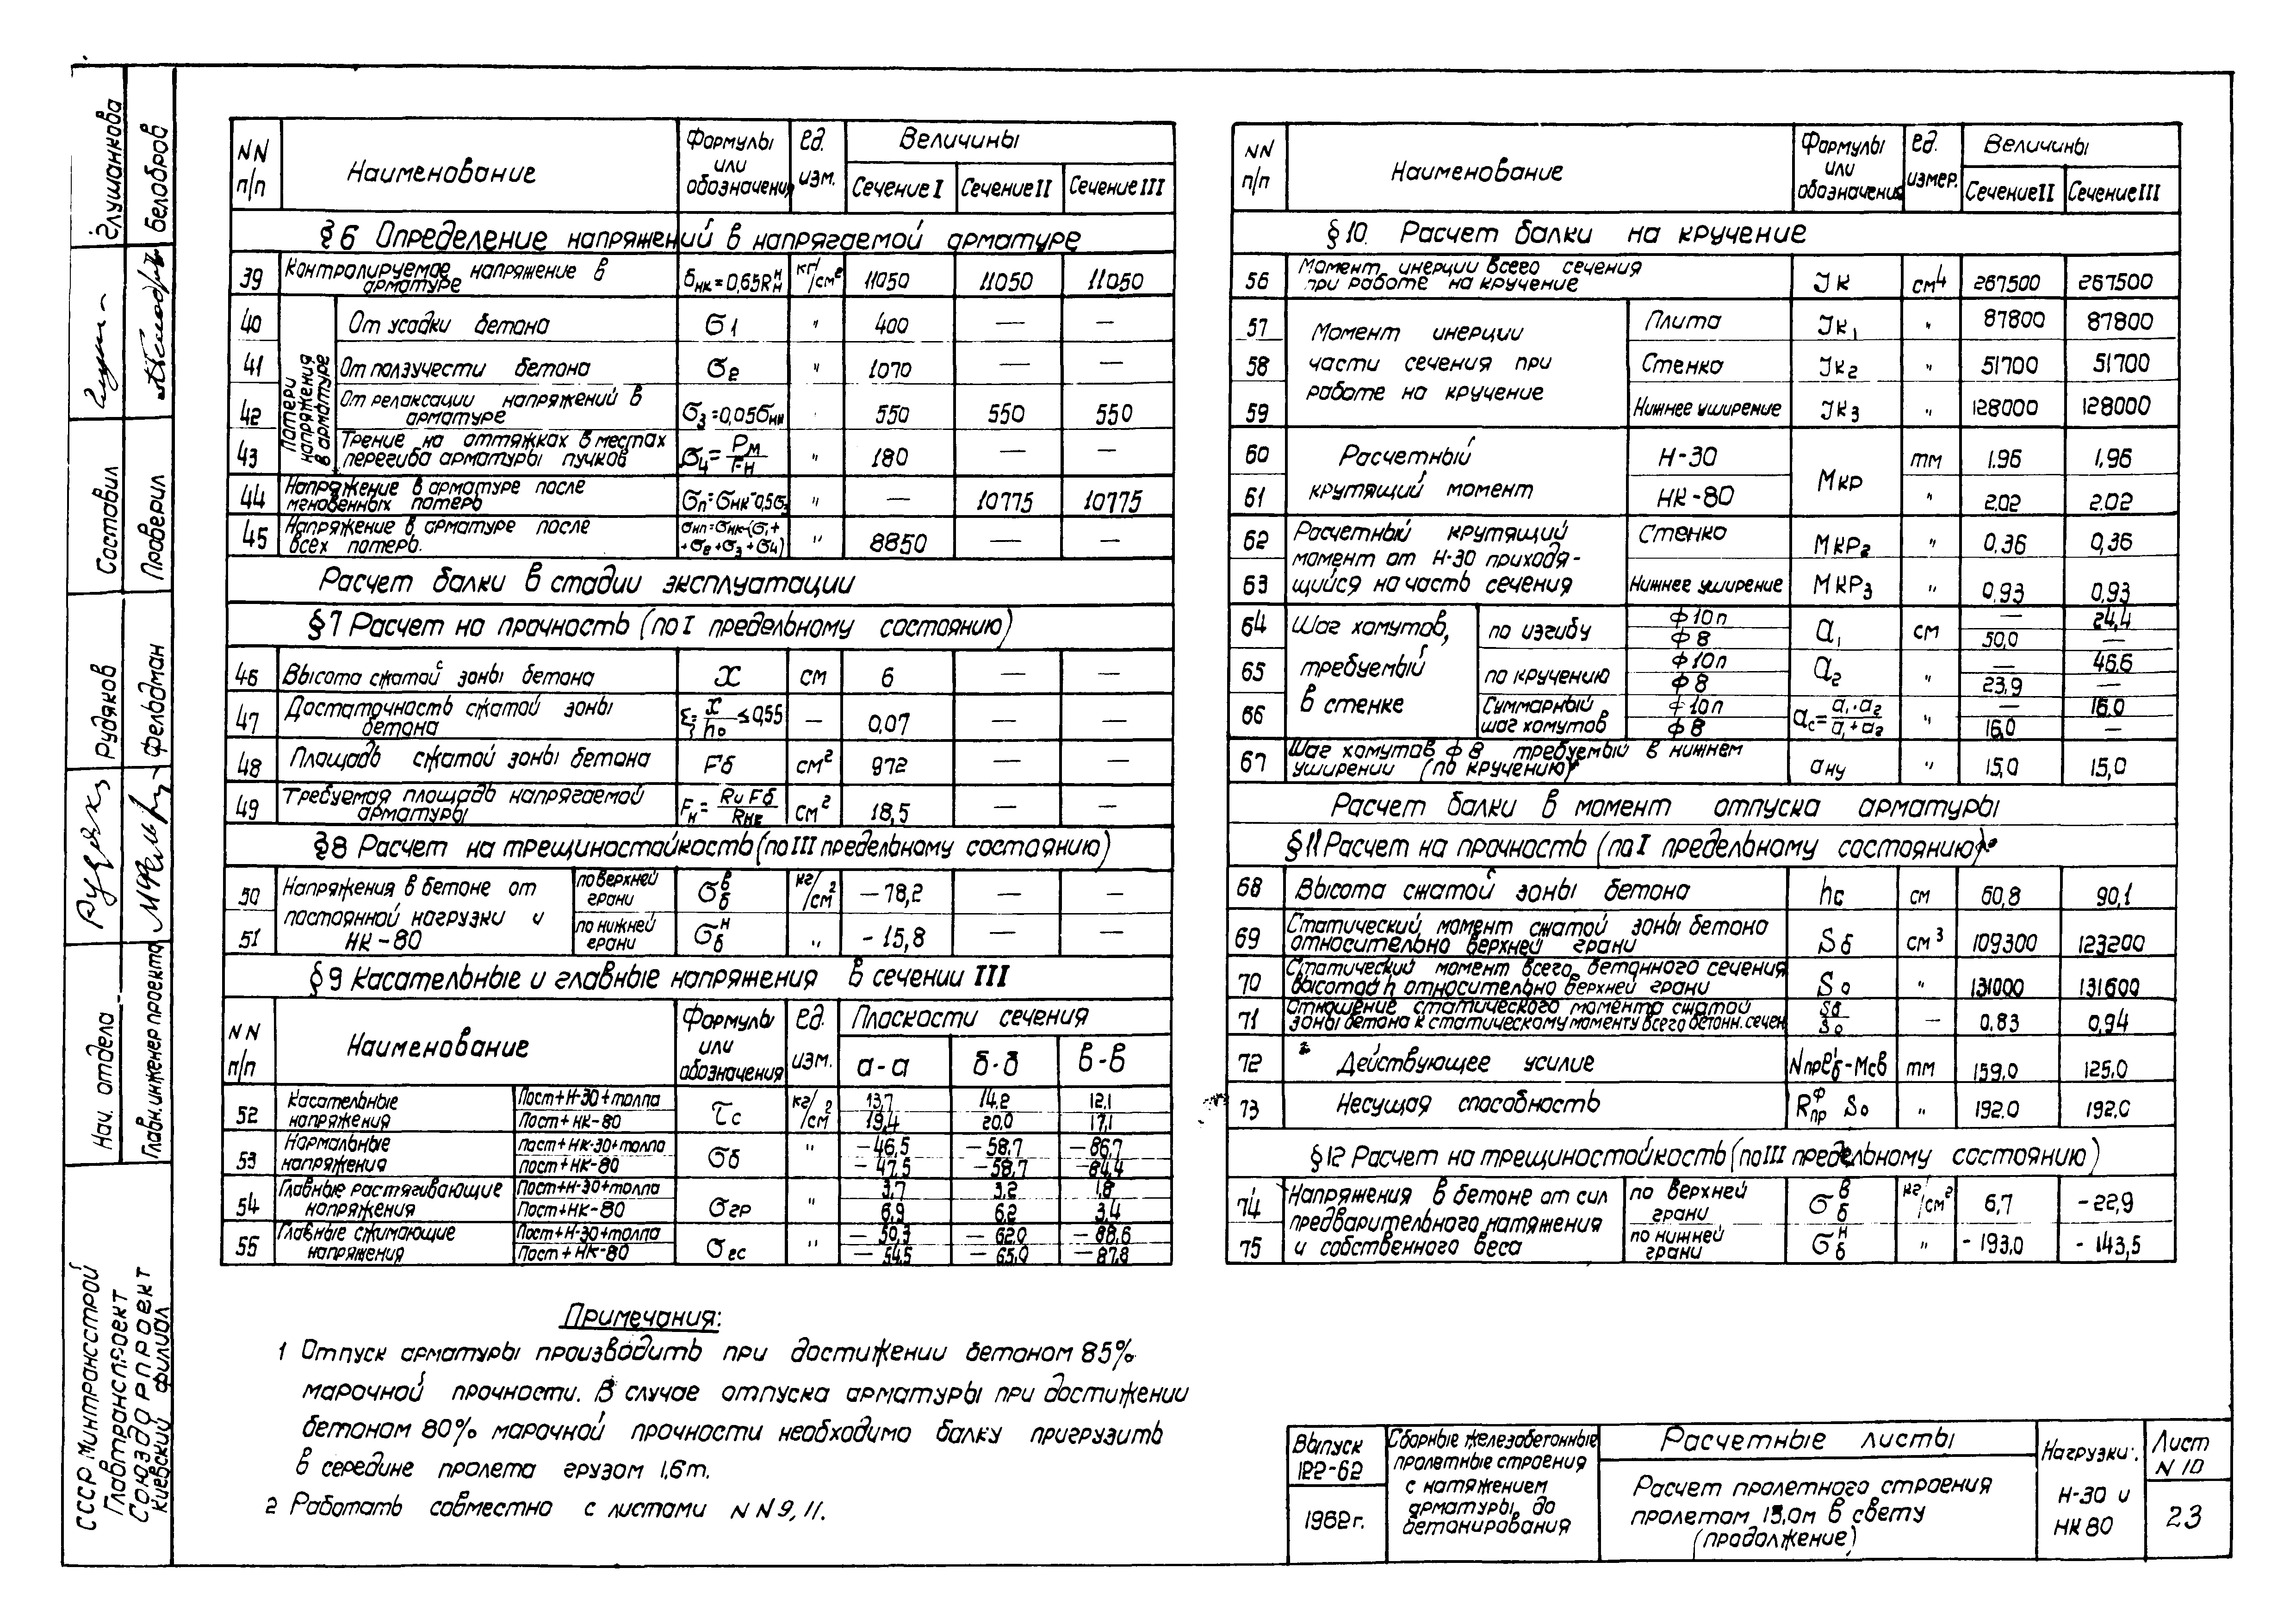 NN п/п | Наименование | Формулы или обозначения | ед. изм. | Величины
Сечение I | Сечение II | Сечение III
§6 Определение напряжений в напрягаемой арматуре
39 | Контролируемое напряжение в арматуре | бнк=0,65Rнн | кг/см² | 11050 | 11050 | 11050
Потери напряжения в арматуре
40 | От усадки бетона | σ1 | " | 400 | — | —
41 | От ползучести бетона | σ2 | " | 1070 | — | —
42 | От релаксации напряжений в арматуре | σ3=0,05σнк | " | 550 | 550 | 550
43 | Трение на оттяжках в местах перегиба арматуры пучков | σ4=Pм/Fн | " | 180 | — | —
44 | Напряжение в арматуре после мгновенных потерь | σп=σнк-0,5σ3 | " | — | 10775 | 10775
45 | Напряжение в арматуре после всех потерь. | σнп=σнк-(σ1+σ2+σ3+σ4) | " | 8850 | — | —
Расчет балки в стадии эксплуатации
§7 Расчет на прочность (по I предельному состоянию)
46 | Высота сжатой зоны бетона | x | см | 6 | — | —
47 | Достаточность сжатой зоны бетона | ξ=x/h0 ≤ 0,55 | — | 0,07 | — | —
48 | Площадь сжатой зоны бетона | Fб | см² | 972 | — | —
49 | Требуемая площадь напрягаемой арматуры | Fн= Ru Fб/Rнг | см² | 18,5 | — | —
§8 Расчет на трещиностойкость (по III предельному состоянию)
Напряжения в бетоне от постоянной нагрузки и НК-80
50 | по верхней грани | σбв | кг/см² | -78,2 | — | —
51 | по нижней грани | σбн | " | -15,8 | — | —
§9 Касательные и главные напряжения в сечении III
NN п/п | Наименование | Формулы или обозначения | ед. изм. | Плоскости сечения
а-а | б-б | в-в
52 | Касательные напряжения | Пост+Н-30+толпа | τс | кг/см² | 13,7 | 14,2 | 12,1
Пост+НК-80 | 19,4 | 20,0 | 17,1
53 | Нормальные напряжения | пост+НК-30+толпа | σб | " | -46,5 | -58,7 | -86,7
пост+НК-80 | -47,5 | -58,7 | -84,4
54 | Главные растягивающие напряжения | Пост+Н-30+толпа | σгр | " | 3,7 | 3,2 | 1,8
Пост+НК-80 | 6,9 | 6,2 | 3,4
55 | Главные сжимающие напряжения | Пост+Н-30+толпа | σгс | " | -50,3 | -62,0 | -88,6
Пост+НК-80 | -54,5 | -65,0 | -87,8
Примечания:
1 Отпуск арматуры производить при достижении бетоном 85%
марочной прочности. В случае отпуска арматуры при достижении
бетоном 80% марочной прочности необходимо балку пригрузить
в середине пролета грузом 1,6т.
2 Работать совместно с листами NN 9, 11.
NN п/п | Наименование | Формулы или обозначения | ед. измер. | Величины
Сечение II | Сечение III
§10. Расчет балки на кручение
56 | Момент инерции всего сечения при работе на кручение | Jк | см4 | 267500 | 267500
Момент инерции части сечения при работе на кручение
57 | Плита | Jк1 | " | 87800 | 87800
58 | Стенка | Jк2 | " | 51700 | 51700
59 | Нижнее уширение | Jк3 | " | 128000 | 128000
Расчетный крутящий момент | Мкр
60 | Н-30 | тм | 1.96 | 1,96
61 | НК-80 | " | 2.02 | 2.02
Расчетный крутящий момент от Н-30 приходящийся на часть сечения
62 | Стенка | Мкр2 | " | 0,36 | 0,36
63 | Нижнее уширение | Мкр3 | " | 0,93 | 0,93
Шаг хомутов, требуемый в стенке
64 | по изгибу | ф10п | a1 | см | — | 24,4
ф8 | 50,0 | —
65 | по кручению | ф10п | a2 | " | — | 46,6
ф8 | 23,9 | —
66 | Суммарный шаг хомутов | ф10п | aс= a1·a2/a1+a2 | " | — | 16,0
ф8 | 16,0 | —
67 | Шаг хомутов ф8 требуемый в нижнем уширении (по кручению) | aну | " | 15,0 | 15,0
Расчет балки в момент отпуска арматуры
§11 Расчет на прочность (по I предельному состоянию)
68 | Высота сжатой зоны бетона | hс | см | 60,8 | 90,1
69 | Статический момент сжатой зоны бетона относительно верхней грани | Sб | см³ | 109300 | 123200
70 | Статический момент всего бетонного сечения высотой h относительно верхней грани | S0 | " | 131000 | 131600
71 | Отношение статического момента сжатой зоны бетона к статическому моменту всего бетонн. сечен | Sб/S0 | — | 0,83 | 0,94
72 | Действующее усилие | Nпрe'б-Mсв | тм | 159,0 | 125,0
73 | Несущая способность | Rпрф S0 | " | 192,0 | 192,0
§12 Расчет на трещиностойкость (по III предельному состоянию)
Напряжения в бетоне от сил предварительного натяжения и собственного веса
74 | по верхней грани | σбв | кг/см² | 6,7 | -22,9
75 | по нижней грани | σбн | " | -193,0 | -143,5
Выпуск 122-62
1962г.
Сборные железобетонные
пролетные строения
с натяжением
арматуры до
бетонирования
Расчетные листы
Расчет пролетного строения
пролетом 15,0м в свету
(продолжение)
Нагрузки:
Н-30 и
НК80
Лист
N 10
23
СССР Минтрансстрой
Главтранспроект
Союздорпроект
Киевский филиал
Нач. отдела
Рудяков
Главн. инженер проекта
Фельдман
Составил
Глушанкова
Проверил
Белобров